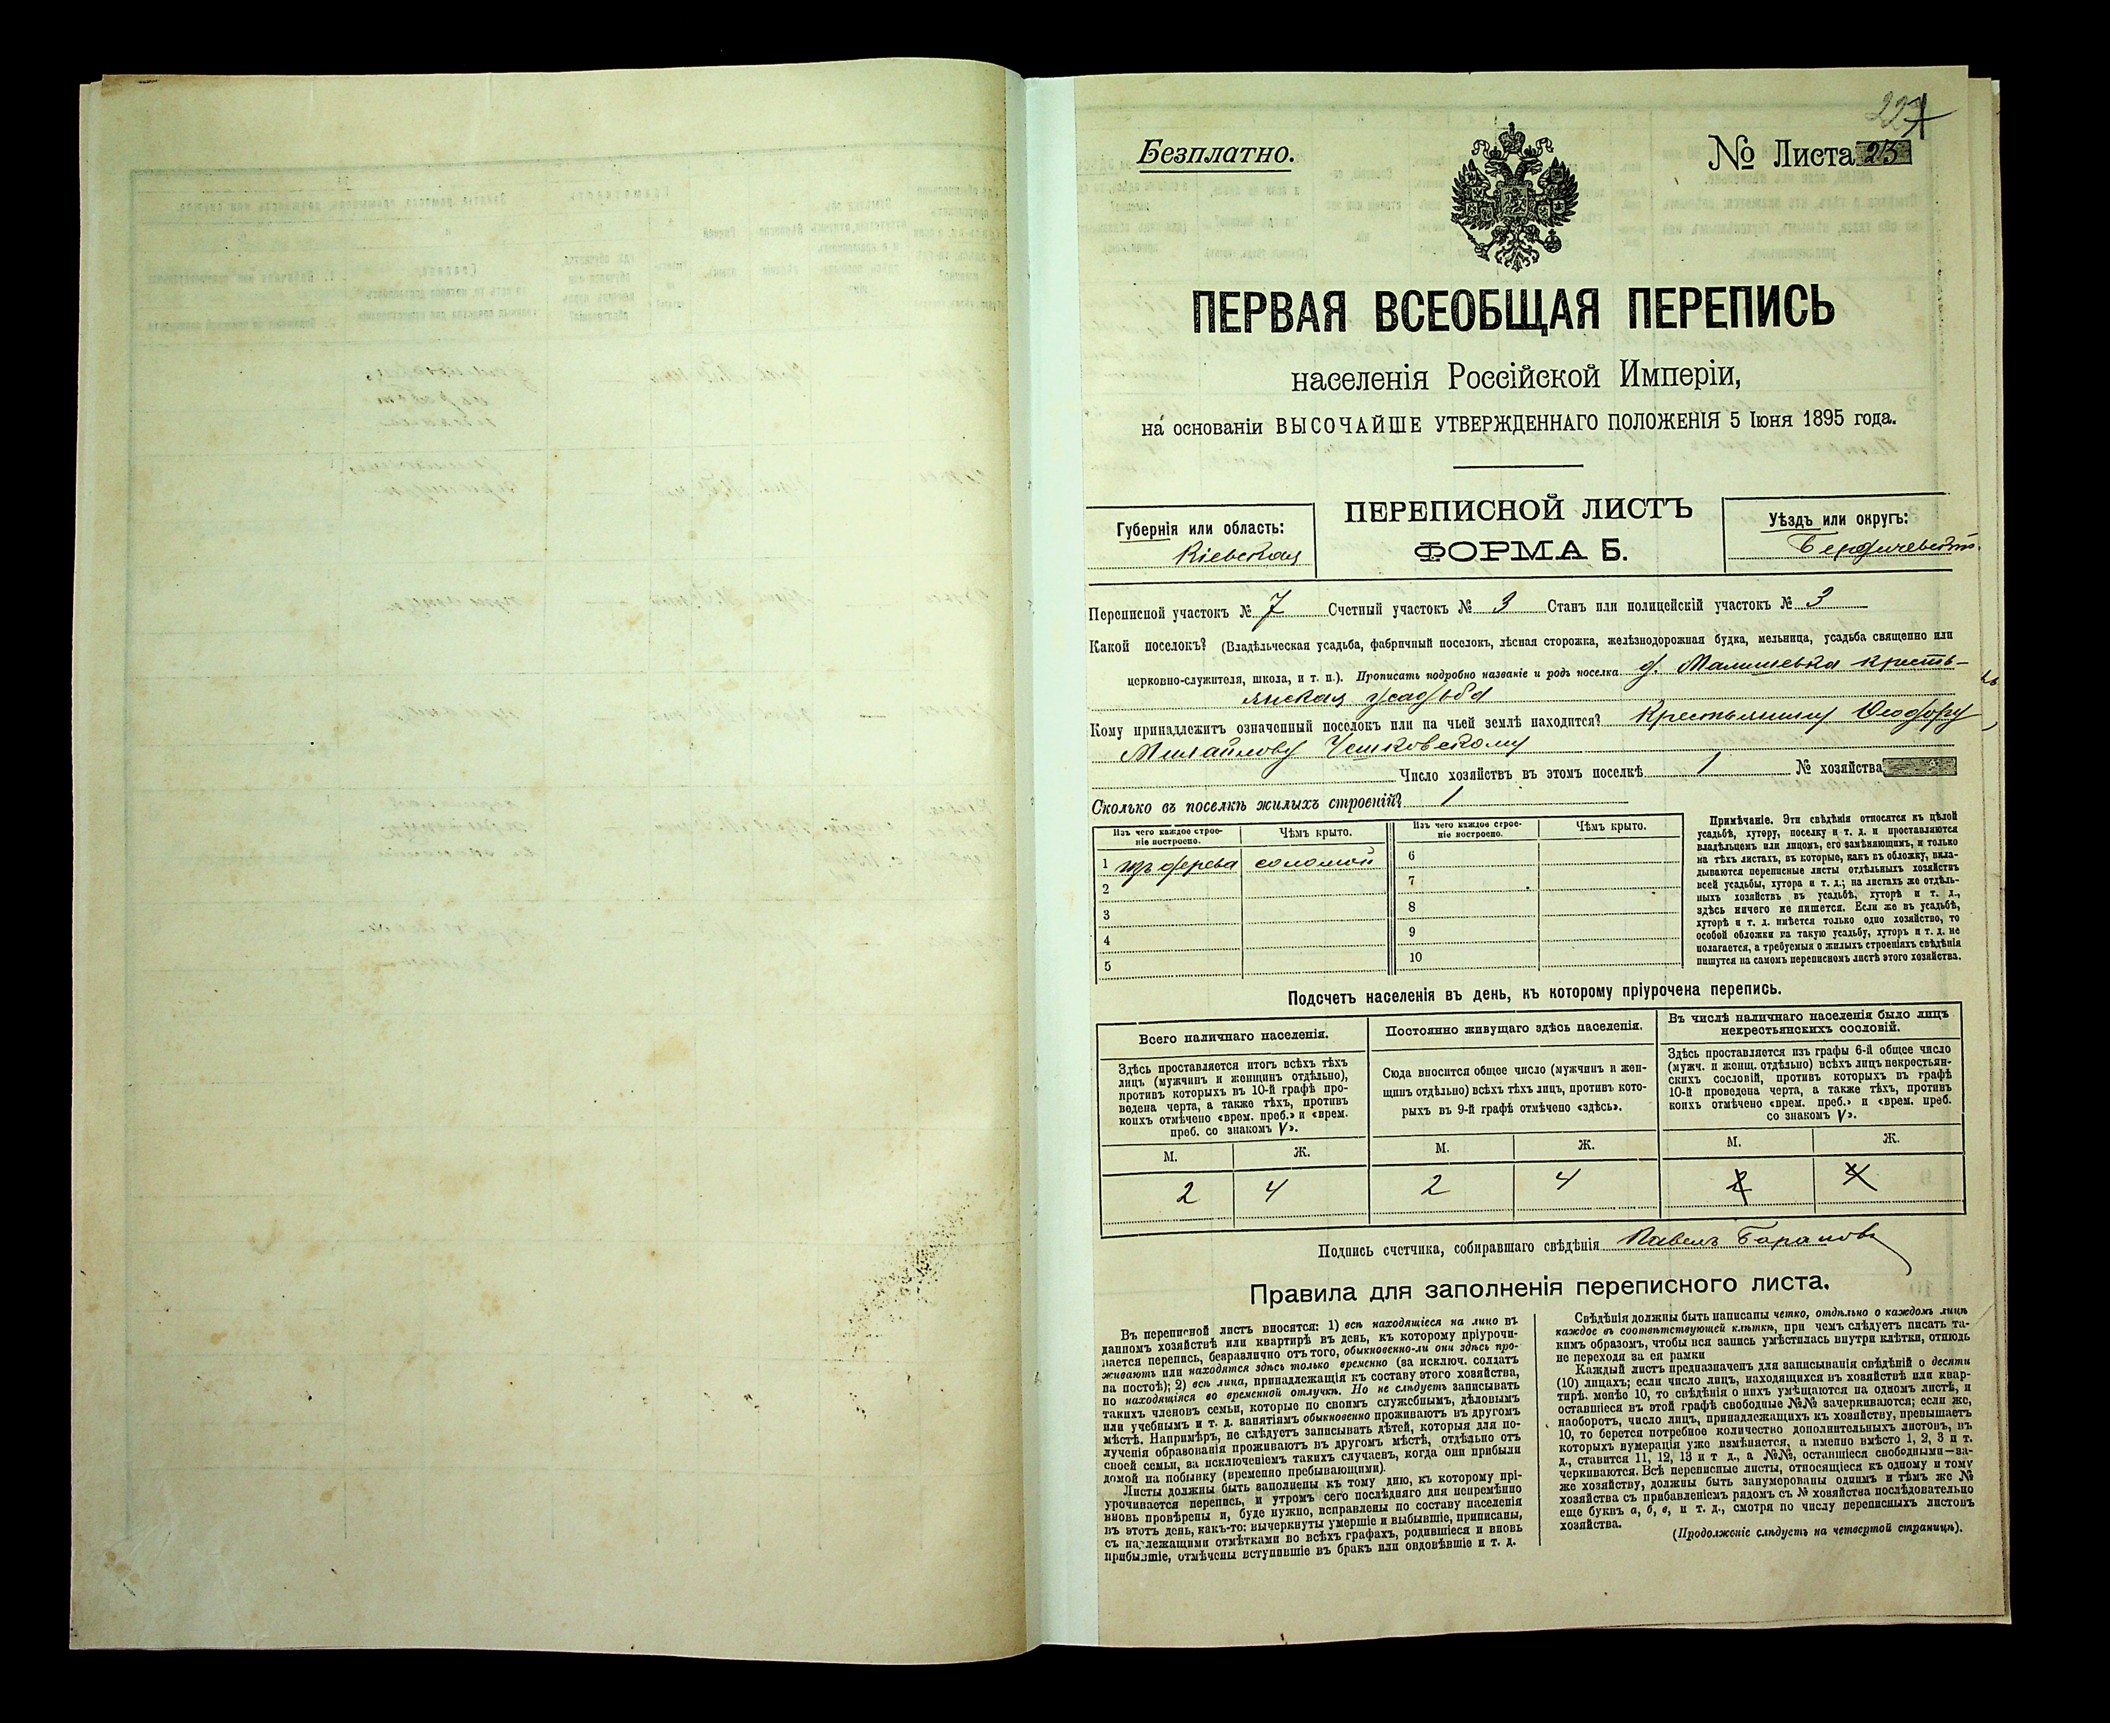 227
Безплатно.
№ Листа 23
ПЕРВАЯ ВСЕОБЩАЯ ПЕРЕПИСЬ
населенія Россійской Имперіи,
на основаніи ВЫСОЧАЙШЕ УТВЕРЖДЕННАГО ПОЛОЖЕНІЯ 5 Іюня 1895 года.
Губернія или область:
Кіевская
ПЕРЕПИСНОЙ ЛИСТЪ
ФОРМА Б.
Уѣздъ или округъ:
Бердичевскій.
Переписной участокъ № 7 Счетный участокъ № 3 Станъ или полицейскій участокъ № 3
Какой поселокъ? (Владѣльческая усадьба, фабричный поселокъ, лѣсная сторожка, желѣзнодорожная будка, мельница, усадьба священно или
церковно-служителя, школа, и т. п.). Прописать подробно названіе и родъ поселка д. Малишевка кресть-
янская усадьба
Кому принадлежитъ означенный поселокъ или на чьей землѣ находится? Крестьянину Ѳеодору
Михайлову Чешковскому
Число хозяйствъ въ этомъ поселкѣ 1 № хозяйства
Сколько въ поселкѣ жилыхъ строеній? 1
Изъ чего каждое строе-
ніе построено.
Чѣмъ крыто.
Изъ чего каждое строе-
ніе построено.
Чѣмъ крыто.
1 изъ дерева соломой 6
2 7
3 8
4 9
5 10
Примѣчаніе. Эти свѣдѣнія относятся къ цѣлой
усадьбѣ, хутору, поселку и т. д. и проставляются
владѣльцемъ или лицомъ, его замѣняющимъ, и только
на тѣхъ листахъ, въ которые, какъ въ обложку, вкла-
дываются переписные листы отдѣльныхъ хозяйствъ
всей усадьбы, хутора и т. д.; на листахъ же отдѣль-
ныхъ хозяйствъ въ усадьбѣ, хуторѣ и т. д.,
здѣсь ничего не пишется. Если же въ усадьбѣ,
хуторѣ и т. д. имѣется только одно хозяйство, то
особой обложки на такую усадьбу, хуторъ и т. д. не
полагается, а требуемыя о жилыхъ строеніяхъ свѣдѣнія
пишутся на самомъ переписномъ листѣ этого хозяйства.
Подсчетъ населенія въ день, къ которому пріурочена перепись.
Всего наличнаго населенія.
Здѣсь проставляется итогъ всѣхъ тѣхъ
лицъ (мужчинъ и женщинъ отдѣльно),
противъ которыхъ въ 10-й графѣ про-
ведена черта, а также тѣхъ, противъ
коихъ отмѣчено «врем. преб.» и «врем.
преб. со знакомъ V».
М. Ж.
2 4
Постоянно живущаго здѣсь населенія.
Сюда вносится общее число (мужчинъ и жен-
щинъ отдѣльно) всѣхъ тѣхъ лицъ, противъ кото-
рыхъ въ 9-й графѣ отмѣчено «здѣсь».
М. Ж.
2 4
Въ числѣ наличнаго населенія было лицъ
некрестьянскихъ сословій.
Здѣсь проставляется изъ графы 6-й общее число
(мужч. и женщ. отдѣльно) всѣхъ лицъ некрестьян-
скихъ сословій, противъ которыхъ въ графѣ
10-й проведена черта, а также тѣхъ, противъ
коихъ отмѣчено «врем. преб.» и «врем. преб.
со знакомъ V».
М. Ж.
2 4
Подпись счетчика, собиравшаго свѣдѣнія Павелъ Барановъ
Правила для заполненія переписного листа.
Въ переписной листъ вносятся: 1) всѣ находящіеся на лицо въ
данномъ хозяйствѣ или квартирѣ въ день, къ которому пріурочи-
вается перепись, безразлично отъ того, обыкновенно-ли они здѣсь про-
живаютъ или находятся здѣсь только временно (за исключ. солдатъ
на постоѣ); 2) всѣ лица, принадлежащія къ составу этого хозяйства,
но находящіяся во временной отлучкѣ. Но не слѣдуетъ записывать
такихъ членовъ семьи, которые по своимъ служебнымъ, дѣловымъ
или учебнымъ и т. д. занятіямъ обыкновенно проживаютъ въ другомъ
мѣстѣ. Напримѣръ, не слѣдуетъ записывать дѣтей, которыя для по-
лученія образованія проживаютъ въ другомъ мѣстѣ, отдѣльно отъ
своей семьи, за исключеніемъ такихъ случаевъ, когда они прибыли
домой на побывку (временно пребывающими).
Листы должны быть заполнены къ тому дню, къ которому прі-
урочивается перепись, и утромъ сего послѣдняго дня непремѣнно
вновь провѣрены и, буде нужно, исправлены по составу населенія
въ этотъ день, какъ-то: вычеркнуты умершіе и выбывшіе, приписаны,
съ надлежащими отмѣтками во всѣхъ графахъ, родившіеся и вновь
прибывшіе, отмѣчены вступившіе въ бракъ или овдовѣвшіе и т. д.
Свѣдѣнія должны быть написаны четко, отдѣльно о каждомъ лицѣ
каждое въ соотвѣтствующей клѣткѣ, при чемъ слѣдуетъ писать та-
кимъ образомъ, чтобы вся запись умѣстилась внутри клѣтки, отнюдь
не переходя за ея рамки
Каждый листъ предназначенъ для записыванія свѣдѣній о десяти
(10) лицахъ; если число лицъ, находящихся въ хозяйствѣ или квар-
тирѣ, менѣе 10, то свѣдѣнія о нихъ умѣщаются на одномъ листѣ, и
оставшіеся въ этой графѣ свободные №№ зачеркиваются; если же,
наоборотъ, число лицъ, принадлежащихъ къ хозяйству, превышаетъ
10, то берется потребное количество дополнительныхъ листовъ, въ
которыхъ нумерація уже измѣняется, а именно вмѣсто 1, 2, 3 и т.
д., ставится 11, 12, 13 и т д., а №№, оставшіеся свободными—за-
черкиваются. Всѣ переписные листы, относящіеся къ одному и тому
же хозяйству, должны быть занумерованы однимъ и тѣмъ же №
хозяйства съ прибавленіемъ рядомъ съ № хозяйства послѣдовательно
еще буквъ а, б, в, и т. д., смотря по числу переписныхъ листовъ
хозяйства.
(Продолженіе слѣдуетъ на четвертой страницѣ).